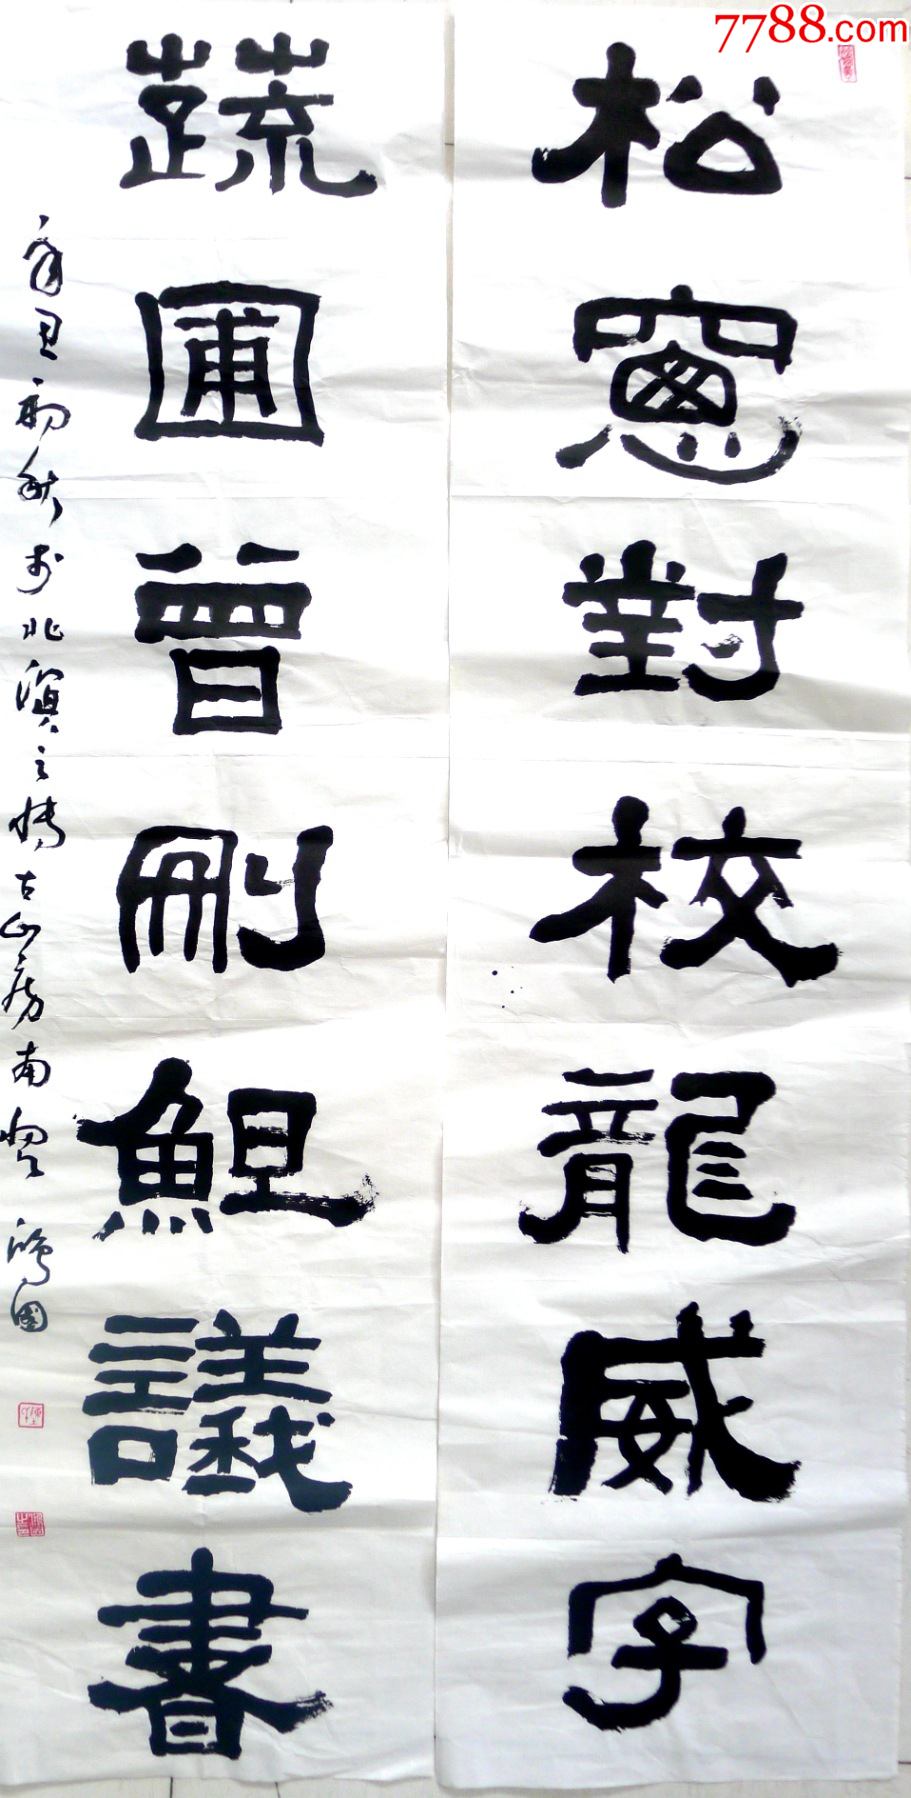 7788.com
松窻對校龍威字
蔬圃曾刪觛議書
辛丑初秋於北濱之摶古山房南窗 鴻圖